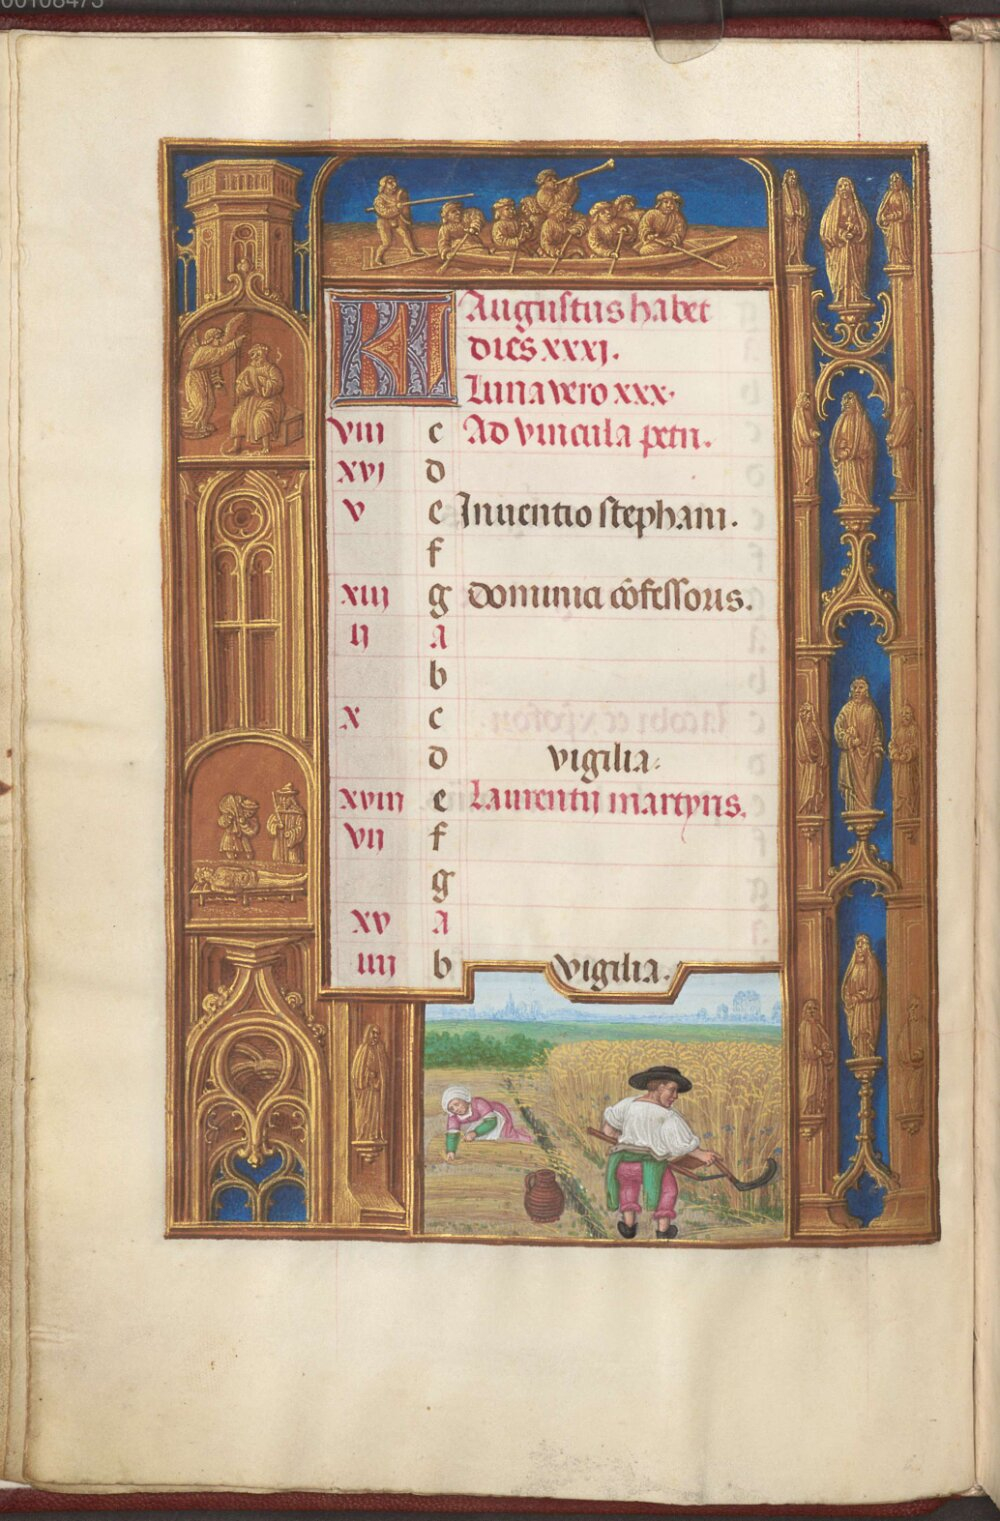 00108473
KL Augustus habet
dies xxxj.
Luna vero xxx.
viii c Ad vincula petri.
xvj d
v e Inuentio stephani.
f
xiij g dominici cōfessoris.
ij a
b
x c
d vigilia.
xviii e Laurentij martyris.
vij f
g
xv a
iiij b vigilia.